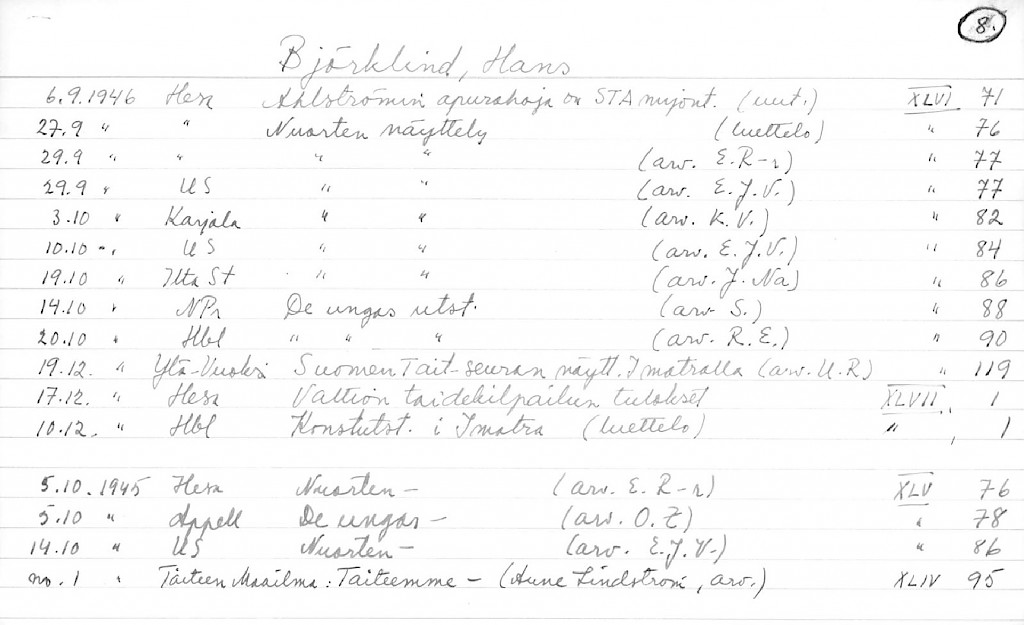 8.
Björklind, Hans
6.9.1946 Hesa Ahlströmin apurahoja on STA myönt. (uut.) XLVI 71
27.9 " " Nuorten näyttely (luettelo) " 76
29.9 " " " " (arv. E.R-r) " 77
29.9 " US " " (arv. E.J.V.) " 77
3.10 " Karjala " " (arv. K.V.) " 82
10.10 " US " " (arv. E.J.V.) " 84
19.10 " Ilta St " " (arv. J. Na) " 86
14.10 " NPr De ungas utst. (arv S.) " 88
20.10 " Hbl " " " (arv. R.E.) " 90
19.12. " Ylä-Vuoksi Suomen Tait-seuran näytt. Imatralla (arv. U.R) " 119
17.12. " Hesa Valtion taidekilpailun tulokset XLVII, 1
10.12. " Hbl Konstutst. i Imatra (luettelo) " , 1
5.10.1945 Hesa Nuorten - (arv. E. R-r) XLV 76
5.10 " Appell De ungas - (arv. O.Z) " 78
14.10 " US Nuorten - (arv. E.J.V.) " 86
no.1 " Taiteen Maailma: Taiteemme - (Aune Lindström, arv.) XLIV 95